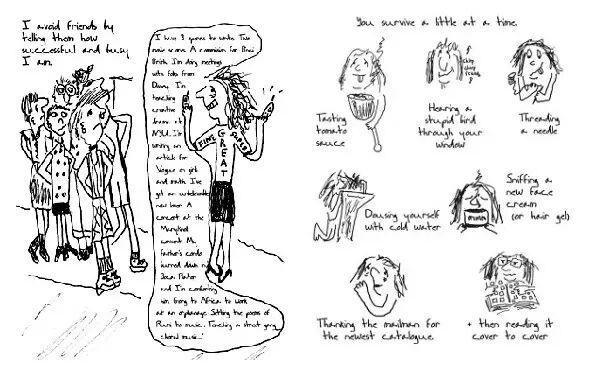 I avoid friends by
telling them how
successful and busy
I am.
I have 3 to write. Two
more A commission for
I'm doing meetings
with folks from
I'm
teaching
creative
drama at
NYU. I'm
writing an
article for
Vogue on girls
and math. I've
got an unbelievable
new lover. A
concert at the
Maryland
convent. My
father's condo
burned down in
and I'm
going to Africa to work
at an orphanage. Setting the poems of
Rumi to music. Teaching a street gang
choral music."
FINE
GREAT
You survive a little at a time.
Tasting
tomato
sauce
Hearing a
stupid bird
through your
window
chirp
chirp
Threading
a needle
Dousing yourself
with cold water
Sniffing a
new face
cream
(or hair gel)
Thanking the mailman for
the newest catalogue
+ then reading it
cover to cover